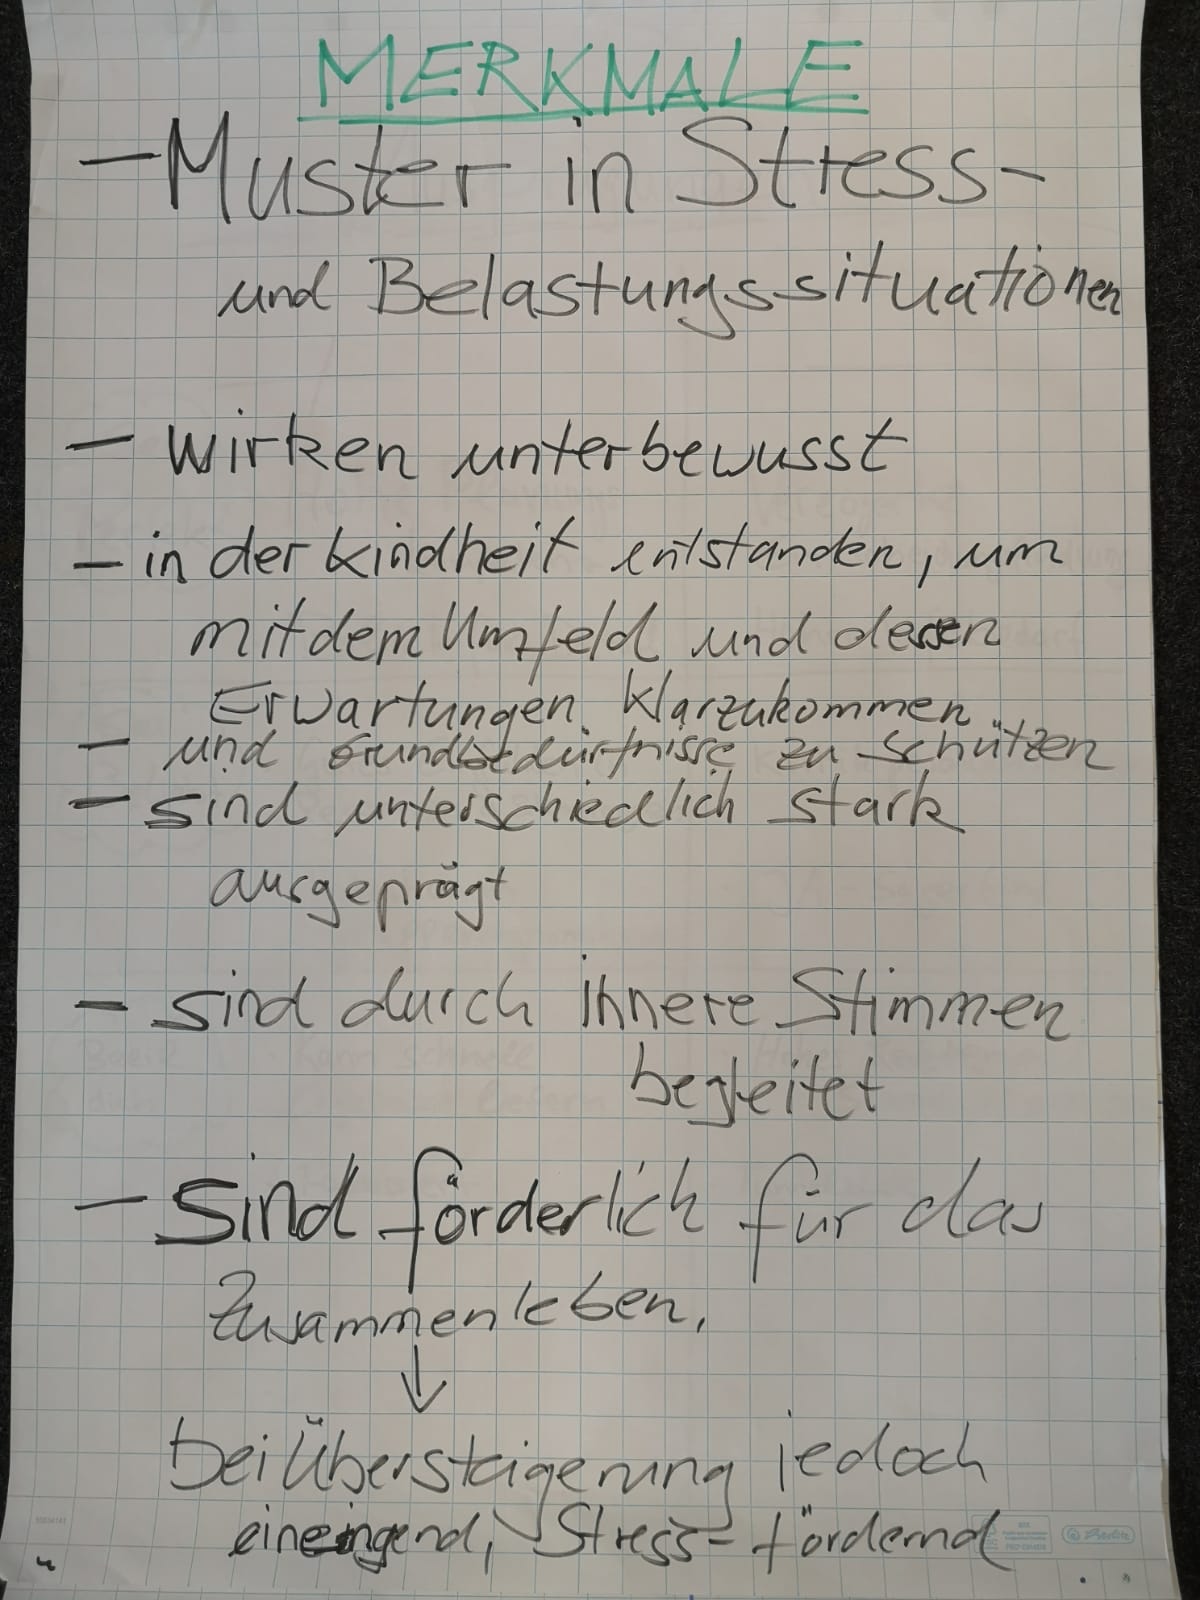 MERKMALE
- Muster in Stress-
und Belastungssituationen
- wirken unterbewusst
- in der Kindheit entstanden, um
mit dem Umfeld und deren
Erwartungen klarzukommen
- und Grundbedürfnisse zu schützen
- sind unterschiedlich stark
ausgeprägt
- sind durch innere Stimmen
begleitet
- sind förderlich für das
Zusammenleben,
↓
bei Übersteigerung jedoch
Stress-fördernd